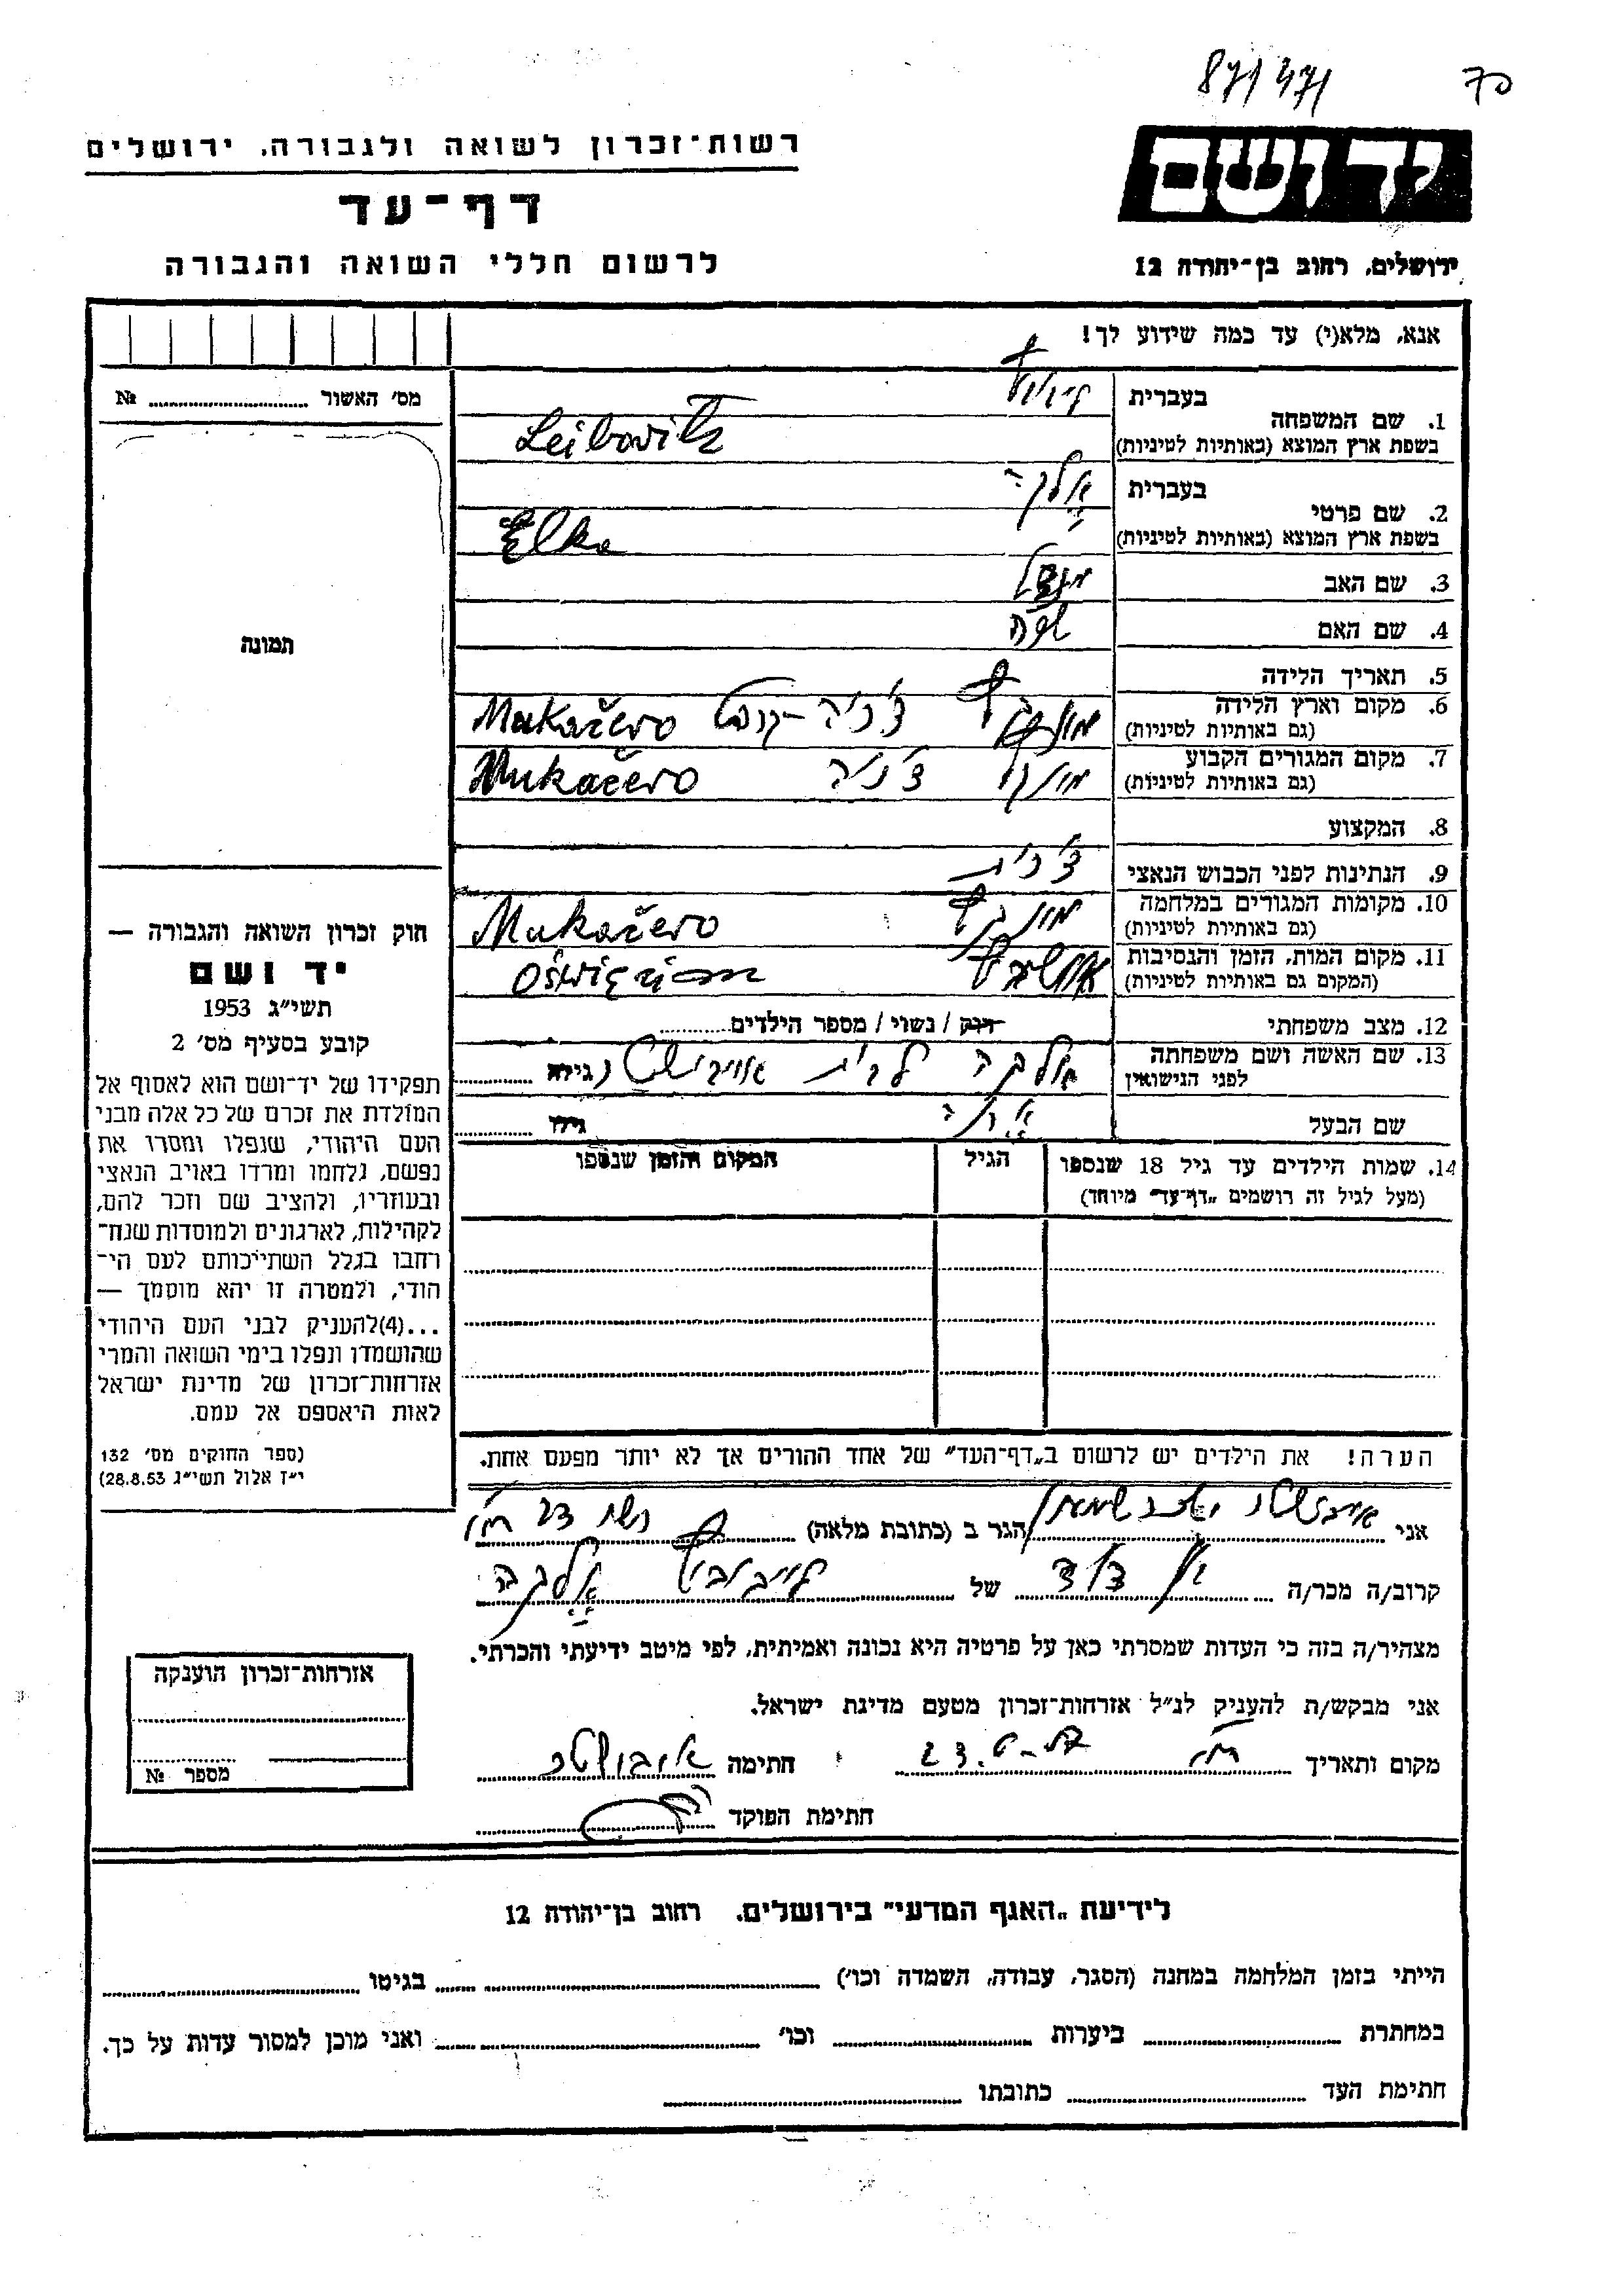 70
יד ושם
ירושלים, רחוב בן־יהודה 12
רשות־זכרון לשואה ולגבורה, ירושלים
דף־עד
לרשום חללי השואה והגבורה
אנא, מלא(י) עד כמה שידוע לך!
1. שם המשפחה
בעברית
בשפת ארץ המוצא (באותיות לטיניות) Leibovitz
2. שם פרטי
בעברית אלקה
בשפת ארץ המוצא (באותיות לטיניות) Elka
3. שם האב מנדל
4. שם האם
5. תאריך הלידה
6. מקום וארץ הלידה
(גם באותיות לטיניות) צ'כיה Mukačevo
7. מקום המגורים הקבוע
(גם באותיות לטיניות) צ'כיה Mukačevo
8. המקצוע
9. הנתינות לפני הכבוש הנאצי צ'כית
10. מקומות המגורים במלחמה
(גם באותיות לטיניות) Mukačevo
11. מקום המות, הזמן והנסיבות
(המקום גם באותיות לטיניות) Oświęcim
12. מצב משפחתי רווק / נשוי / מספר הילדים
13. שם האשה ושם משפחתה
לפני הנישואין לבית גילה
שם הבעל גילו
14. שמות הילדים עד גיל 18 שנספו
(מעל לגיל זה רושמים „דף־עד" מיוחד)
הגיל
המקום והזמן שנספו
הערה! את הילדים יש לרשום ב„דף־העד" של אחד ההורים אך לא יותר מפעם אחת.
אני הגר ב (כתובת מלאה)
קרוב/ה מכר/ה של
מצהיר/ה בזה כי העדות שמסרתי כאן על פרטיה היא נכונה ואמיתית, לפי מיטב ידיעתי והכרתי.
אני מבקש/ת להעניק לנ"ל אזרחות־זכרון מטעם מדינת ישראל.
מקום ותאריך חתימה
חתימת הפוקד
מס' האשור №
תמונה
חוק זכרון השואה והגבורה —
יד ושם
תשי"ג 1953
קובע בסעיף מס' 2
תפקידו של יד־ושם הוא לאסוף אל
המולדת את זכרם של כל אלה מבני
העם היהודי, שנפלו ומסרו את
נפשם, נלחמו ומרדו באויב הנאצי
ובעוזריו, ולהציב שם וזכר להם,
לקהילות, לארגונים ולמוסדות שנח־
רחבו בגלל השתייכותם לעם הי־
הודי, ולמטרה זו יהא מוסמך —
...(4)להעניק לבני העם היהודי
שהושמדו ונפלו בימי השואה והמרי
אזרחות־זכרון של מדינת ישראל
לאות היאספם אל עמם.
(ספר החוקים מס' 132
י"ז אלול תשי"ג 28.8.53)
אזרחות־זכרון הוענקה
מספר №
לידיעת „האגף המדעי" בירושלים, רחוב בן־יהודה 12
הייתי בזמן המלחמה במחנה (הסגר, עבודה, השמדה וכו') בגיטו
במחתרת ביערות וכו' ואני מוכן למסור עדות על כך.
חתימת העד כתובתו